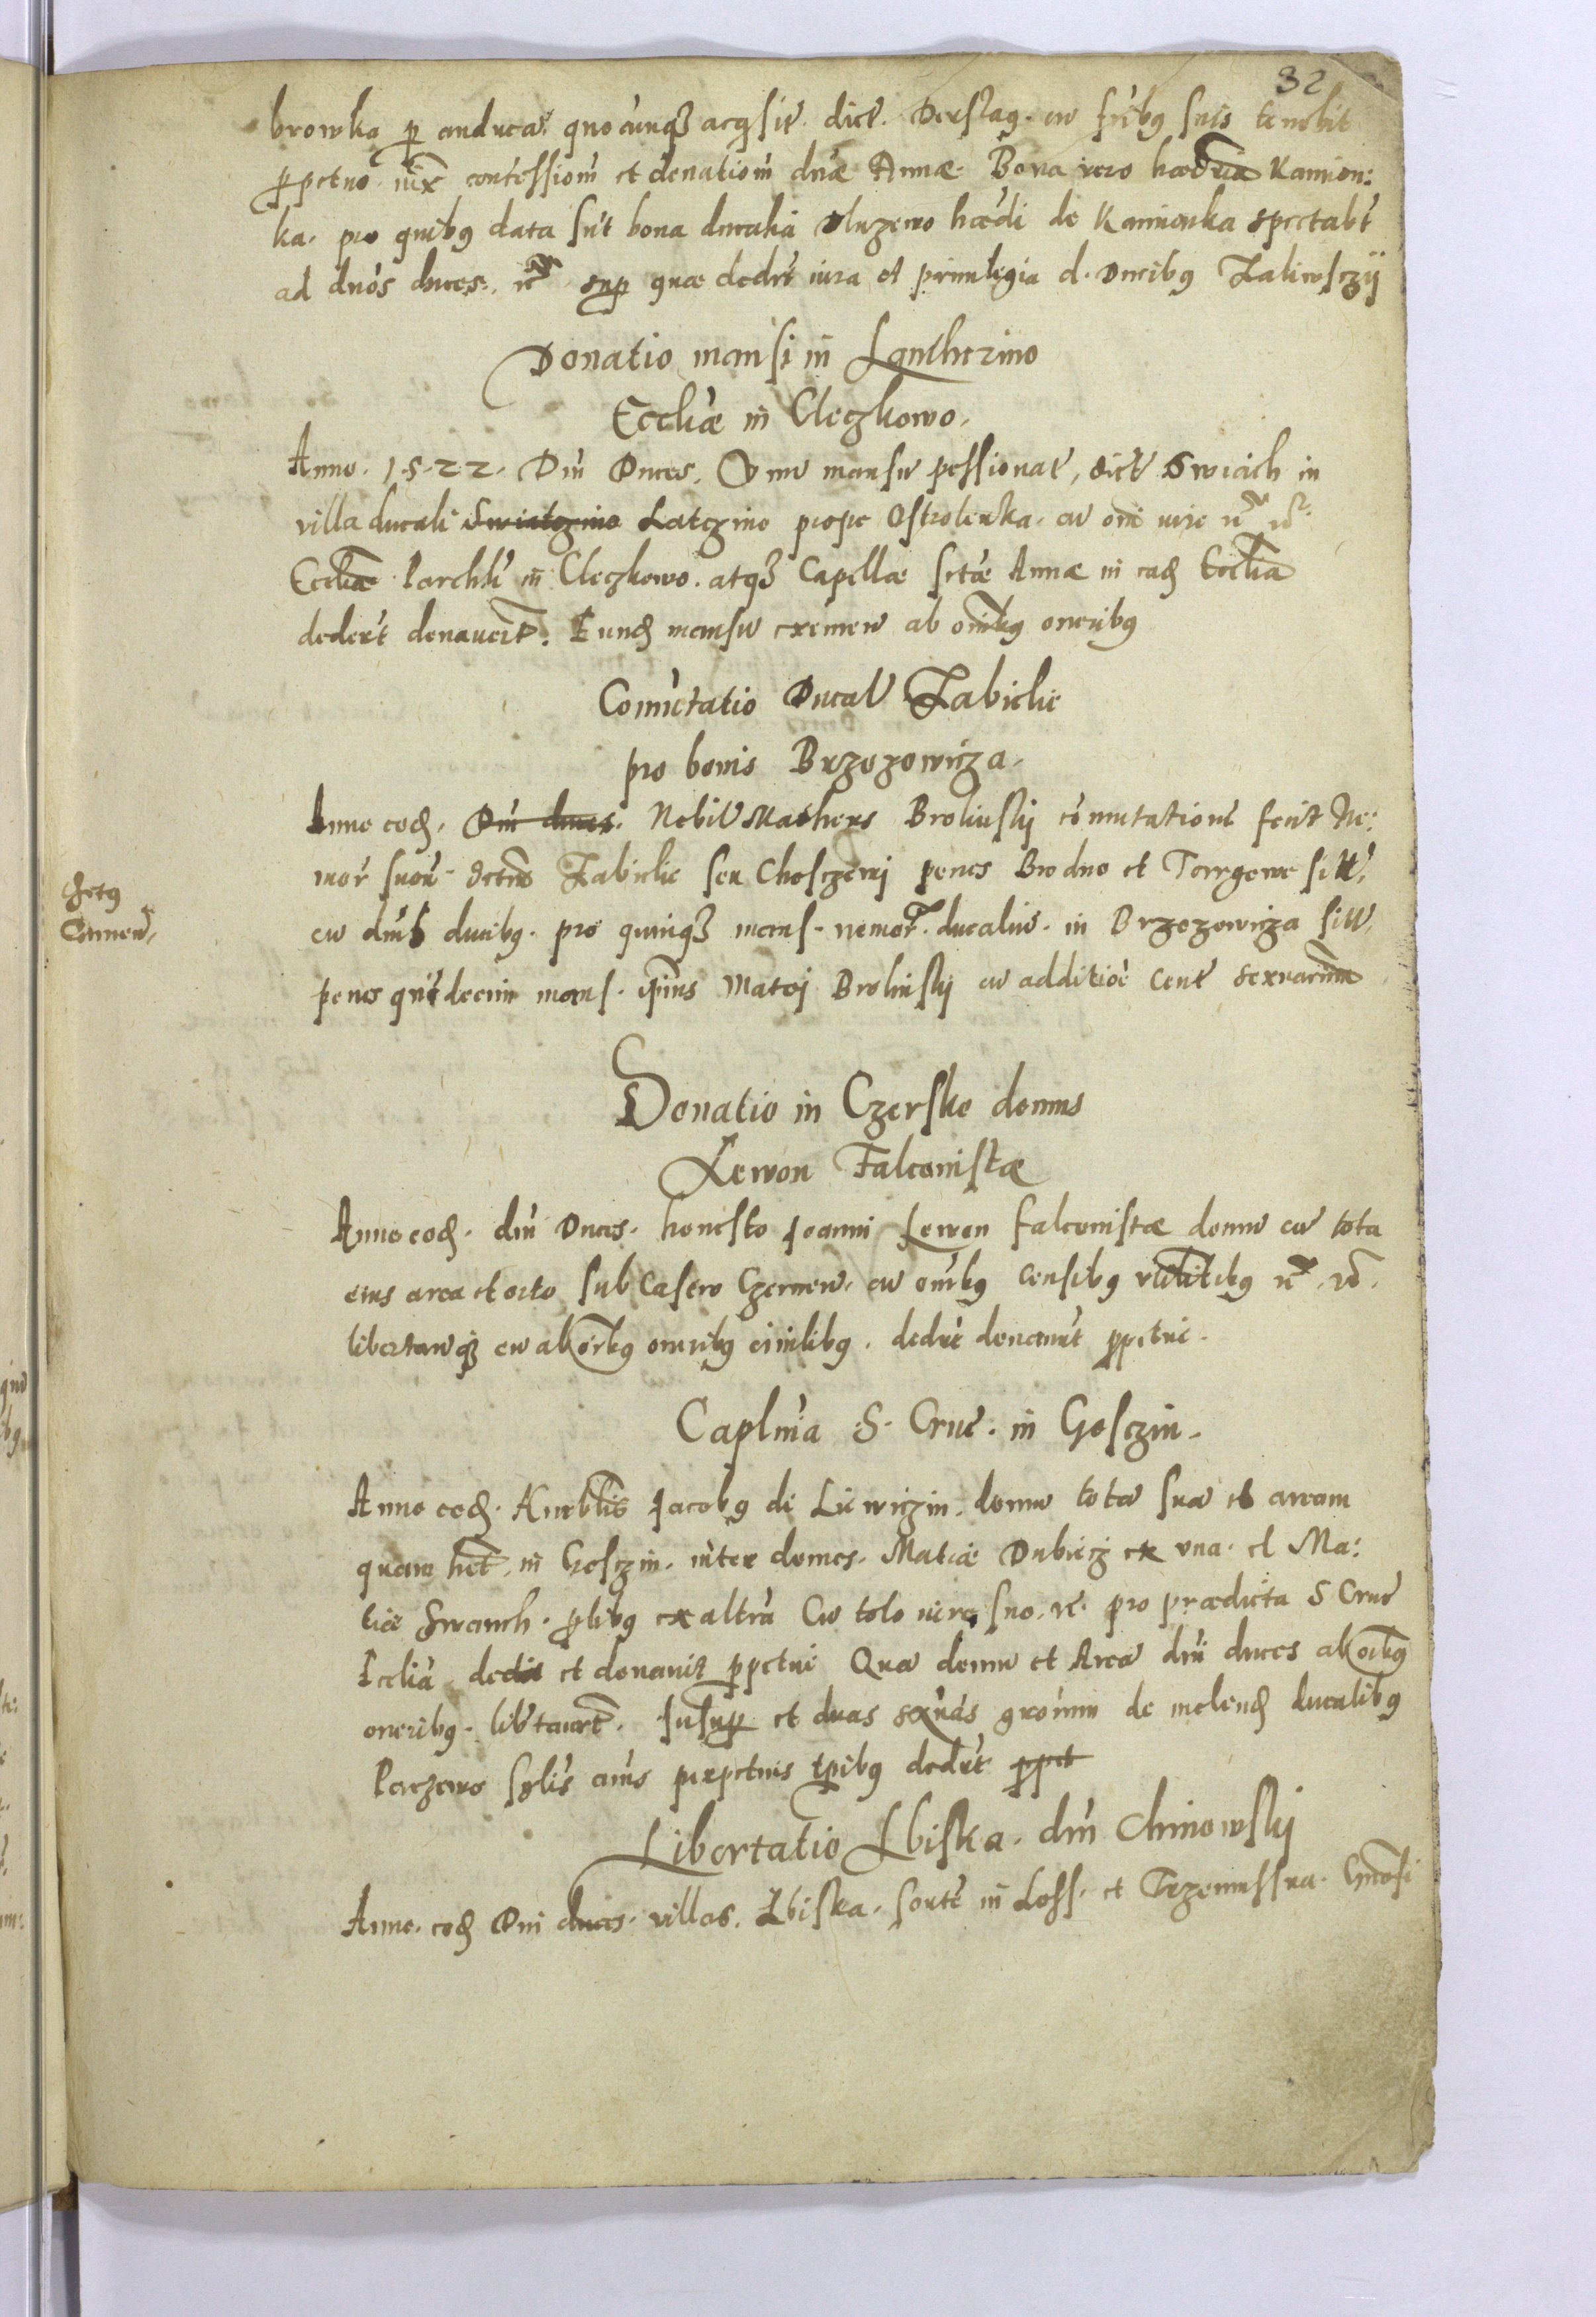 32
browka p anducat quocunq3 acqsit. dict. Derslag. cu fribg suis tenebit
ppetuo. iux concessiom et donationi dnae Annae. Bona vero haedria Kamion:
ka. pro quibg data sut bona ducalia Dluzewo haedi de Kamionka spectabt
ad dnos duces. rc sup quae dedrt iura et priuilegia d. Ducibg Zaliwsczÿ
Donatio mansi in Lancherzino
Eccliae in Cleczkowo.
Anno. 1522. Dni Duces. Unu mansu possionat, dict Swicich in
villa ducali Swiatczino Latczino prope Ostrolenka. cu omi iure rc rc.
Eccliae Parchli in Cleczkowo. atq3 Capellae sctae Annae in ead Ecclia
dedert donauert. Eund mansu eximen ab omibg oneribg
Comutatio Ducal Zabiele
pro bonis Brzozowicza.
Anno eod. Dni duces. Nobil Matheus Broliuskj comutatione fecit Ne:
mor suor. dctor Zabiele seu Chosczewj penes Brodno et Targowe sitt.
cu dnis ducibg. pro quinq3 mans. nemor. ducaliu. in Brzozowicza sitt.
penes quidecim mans. ipius Matej Broliuskj cu additioe cent sexnariu
Actg
Camen.
Donatio in Czersko domus
Lewon Falconistae
Anno eod. dni Duces. honesto Joanni Lewon falconistae domu cu tota
eius area et orto sub Castro Czernen. cu omibg censibg vtilitibg rc. rc.
libertanq3 eu ab omibg oneribg ciuilibg. dedrt donarut ppetue.
Caplnia S. Cruc. in Gosczin.
Anno eod. Hnrblis Jacobg de Liewiczin. domu tota sua et aream
quam het. in Gosczin. inter domos. Matiae Dubiecz ex una. et Ma:
tiae Swanch. plibg ex altra Cu toto iure suo. rc. pro praedicta S Cruc
Ecclia dedit et donauit ppetue Qua domu et Area dni duces ab oibg
oneribg. libtauert. Insup et duas sexnas granu de molend ducalibg
Parczewo sglis anis perpetuis tpibg dedrt ppet
Libertatio Lbiska. dni Chinowskj
Anno. eod Dni duces. villas. Lbiska. sorte in Loss. et Trzemussna. Gnosi